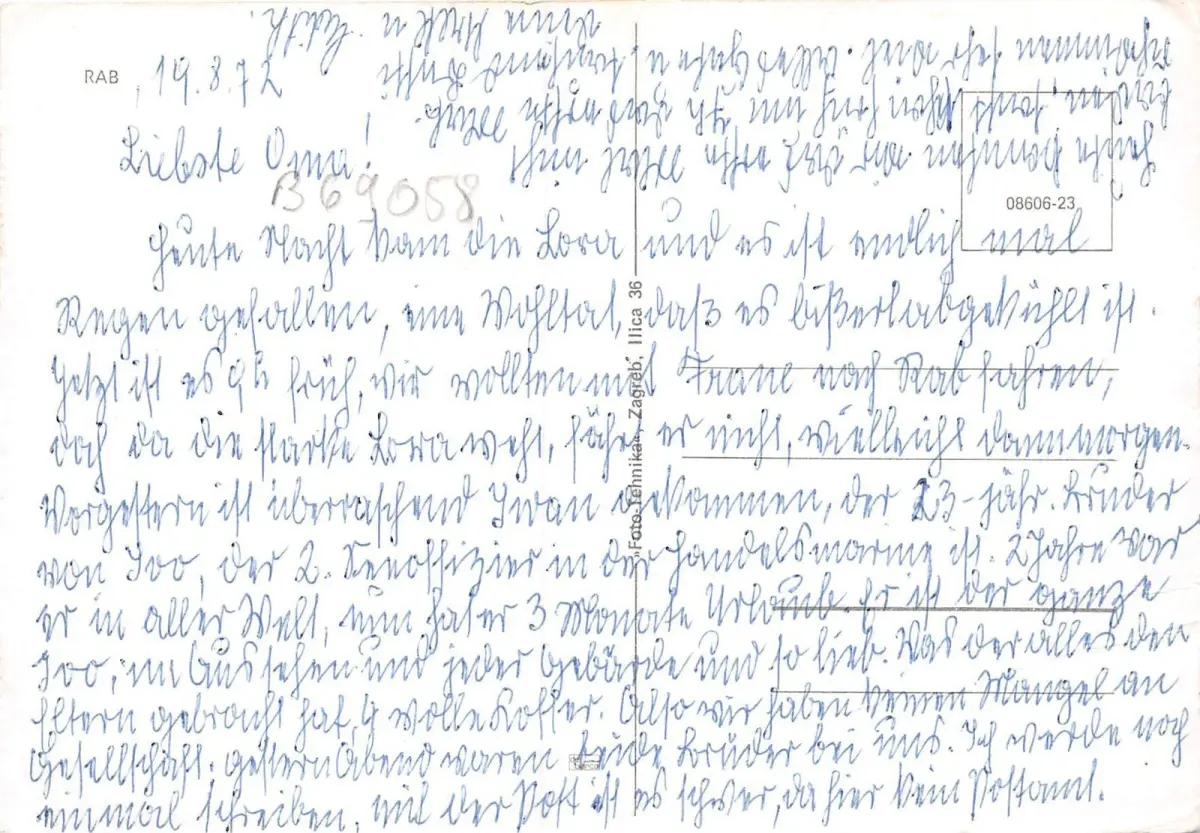 RAB, 19.8.72
Liebste Oma!
B69058
08606-23
Heute Nacht kam die Bora und es ist endlich mal
Regen gefallen, eine Wohltat, daß es bißerl abgekühlt ist.
Jetzt ist es 9h früh, wir wollten mit nach Rab fahren,
doch da die starke Bora weht, fährt er nicht, vielleicht dann morgen.
Vorgestern ist überraschend Ivan gekommen, der 23-jähr. Bruder
von Ivo, der 2. Seeoffizier in der Handelsmarine ist. 2 Jahre war
er in aller Welt, nun hat er 3 Monate Urlaub. Er ist der ganze
Ivo, im Aussehen und jeder Gebärde und so lieb. Was der alles den
Eltern gebracht hat, 4 volle Koffer. Also wir haben keinen Mangel an
Gesellschaft, gestern Abend waren beide Brüder bei uns. Ich werde noch
einmal schreiben, mit der Post ist es schwer, da hier kein Postamt.
Heute konnten wir das erste Mal nicht
sonst schon früh um 7h das erste Mal.
schwimmen sehr viel. Alles Gute u. tausend Bussi
Deine u. Edith.
"Foto-Tehnika", Zagreb, Ilica 36